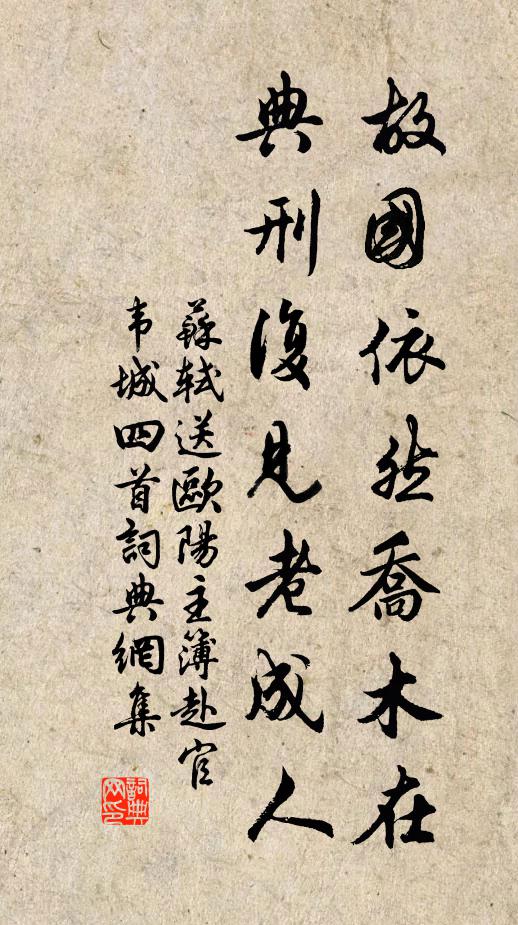 故國依然喬木在
典刑復見老成人
蘇軾送歐陽主簿赴官
韦城四首詞典網集
詞典
网印